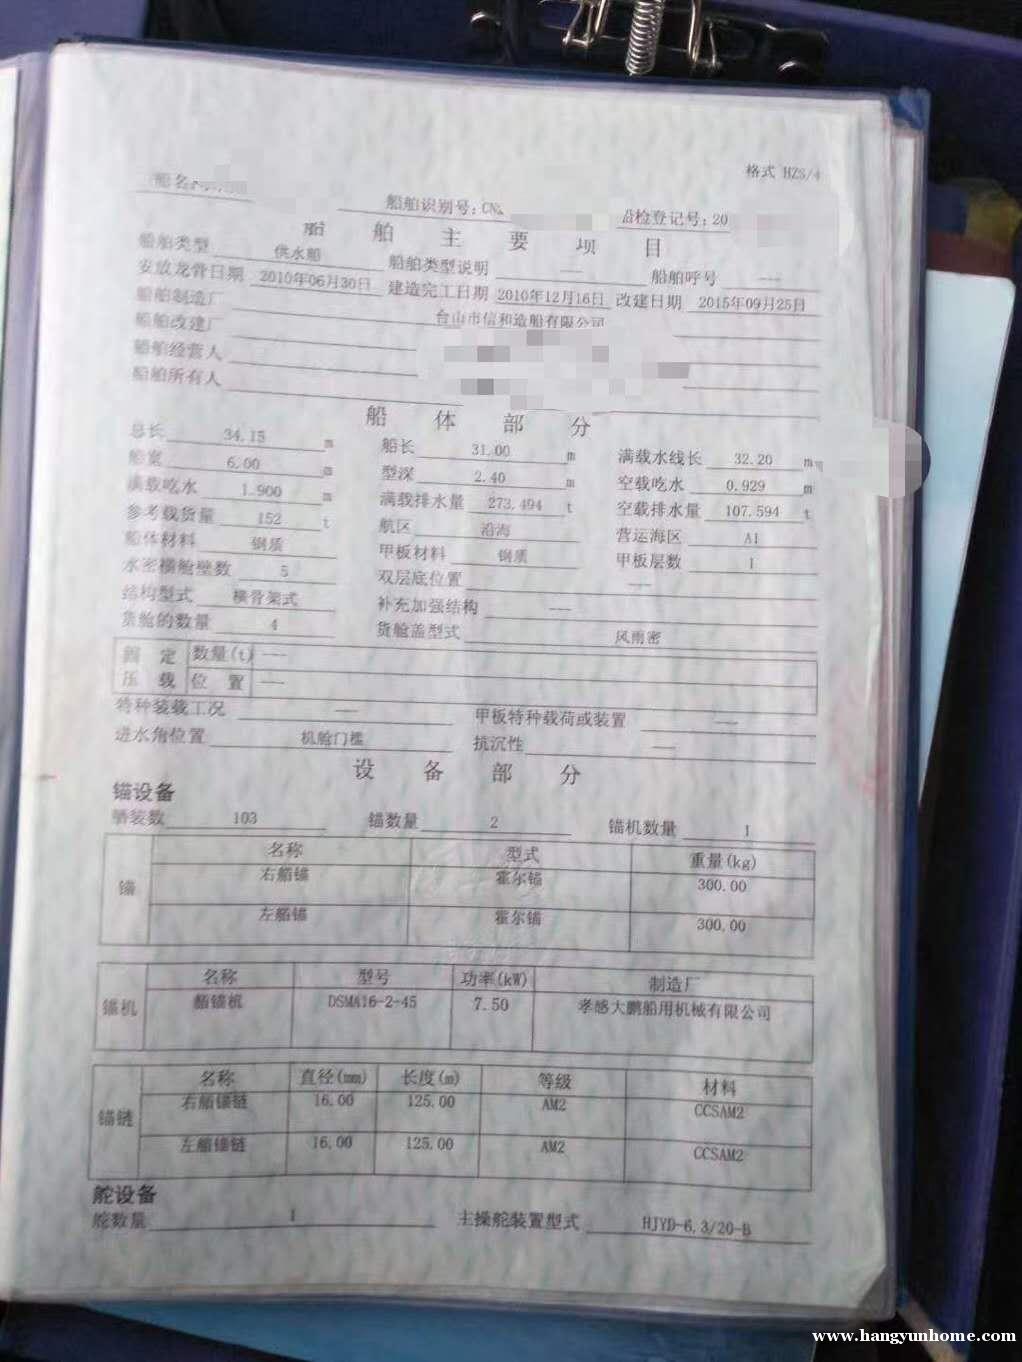 格式 HZS/4
船名
船舶识别号:CN
船检登记号:20
船舶主要项目
船舶类型 供水船 船舶类型说明 --- 船舶呼号 ---
安放龙骨日期 2010年06月30日 建造完工日期 2010年12月16日 改建日期 2015年09月25日
船舶制造厂 台山市信和造船有限公司
船舶改建厂
船舶经营人
船舶所有人
船体部分
总长 34.15 m 船长 31.00 m 满载水线长 32.20 m
船宽 6.00 m 型深 2.40 m 空载吃水 0.929 m
满载吃水 1.900 m 满载排水量 273.494 t 空载排水量 107.594 t
参考载货量 152 t 航区 沿海 营运海区 A1
船体材料 钢质 甲板材料 钢质 甲板层数 1
水密横舱壁数 5 双层底位置 ---
结构型式 横骨架式 补充加强结构 ---
货舱的数量 4 货舱盖型式 风雨密
固定 数量(t) ---
压载 位置 ---
特种装载工况 --- 甲板特种载荷或装置 ---
进水角位置 机舱门槛 抗沉性 ---
设备部分
锚设备
舾装数 103 锚数量 2 锚机数量 1
名称 型式 重量(kg)
锚 右艏锚 霍尔锚 300.00
左艏锚 霍尔锚 300.00
名称 型号 功率(kW) 制造厂
锚机 艏锚机 DSMA16-2-45 7.50 孝感大鹏船用机械有限公司
名称 直径(mm) 长度(m) 等级 材料
锚链 右艏锚链 16.00 125.00 AM2 CCSAM2
左艏锚链 16.00 125.00 AM2 CCSAM2
舵设备
舵数量 1 主操舵装置型式 HJYD-6.3/20-B
www.hangyunhome.com